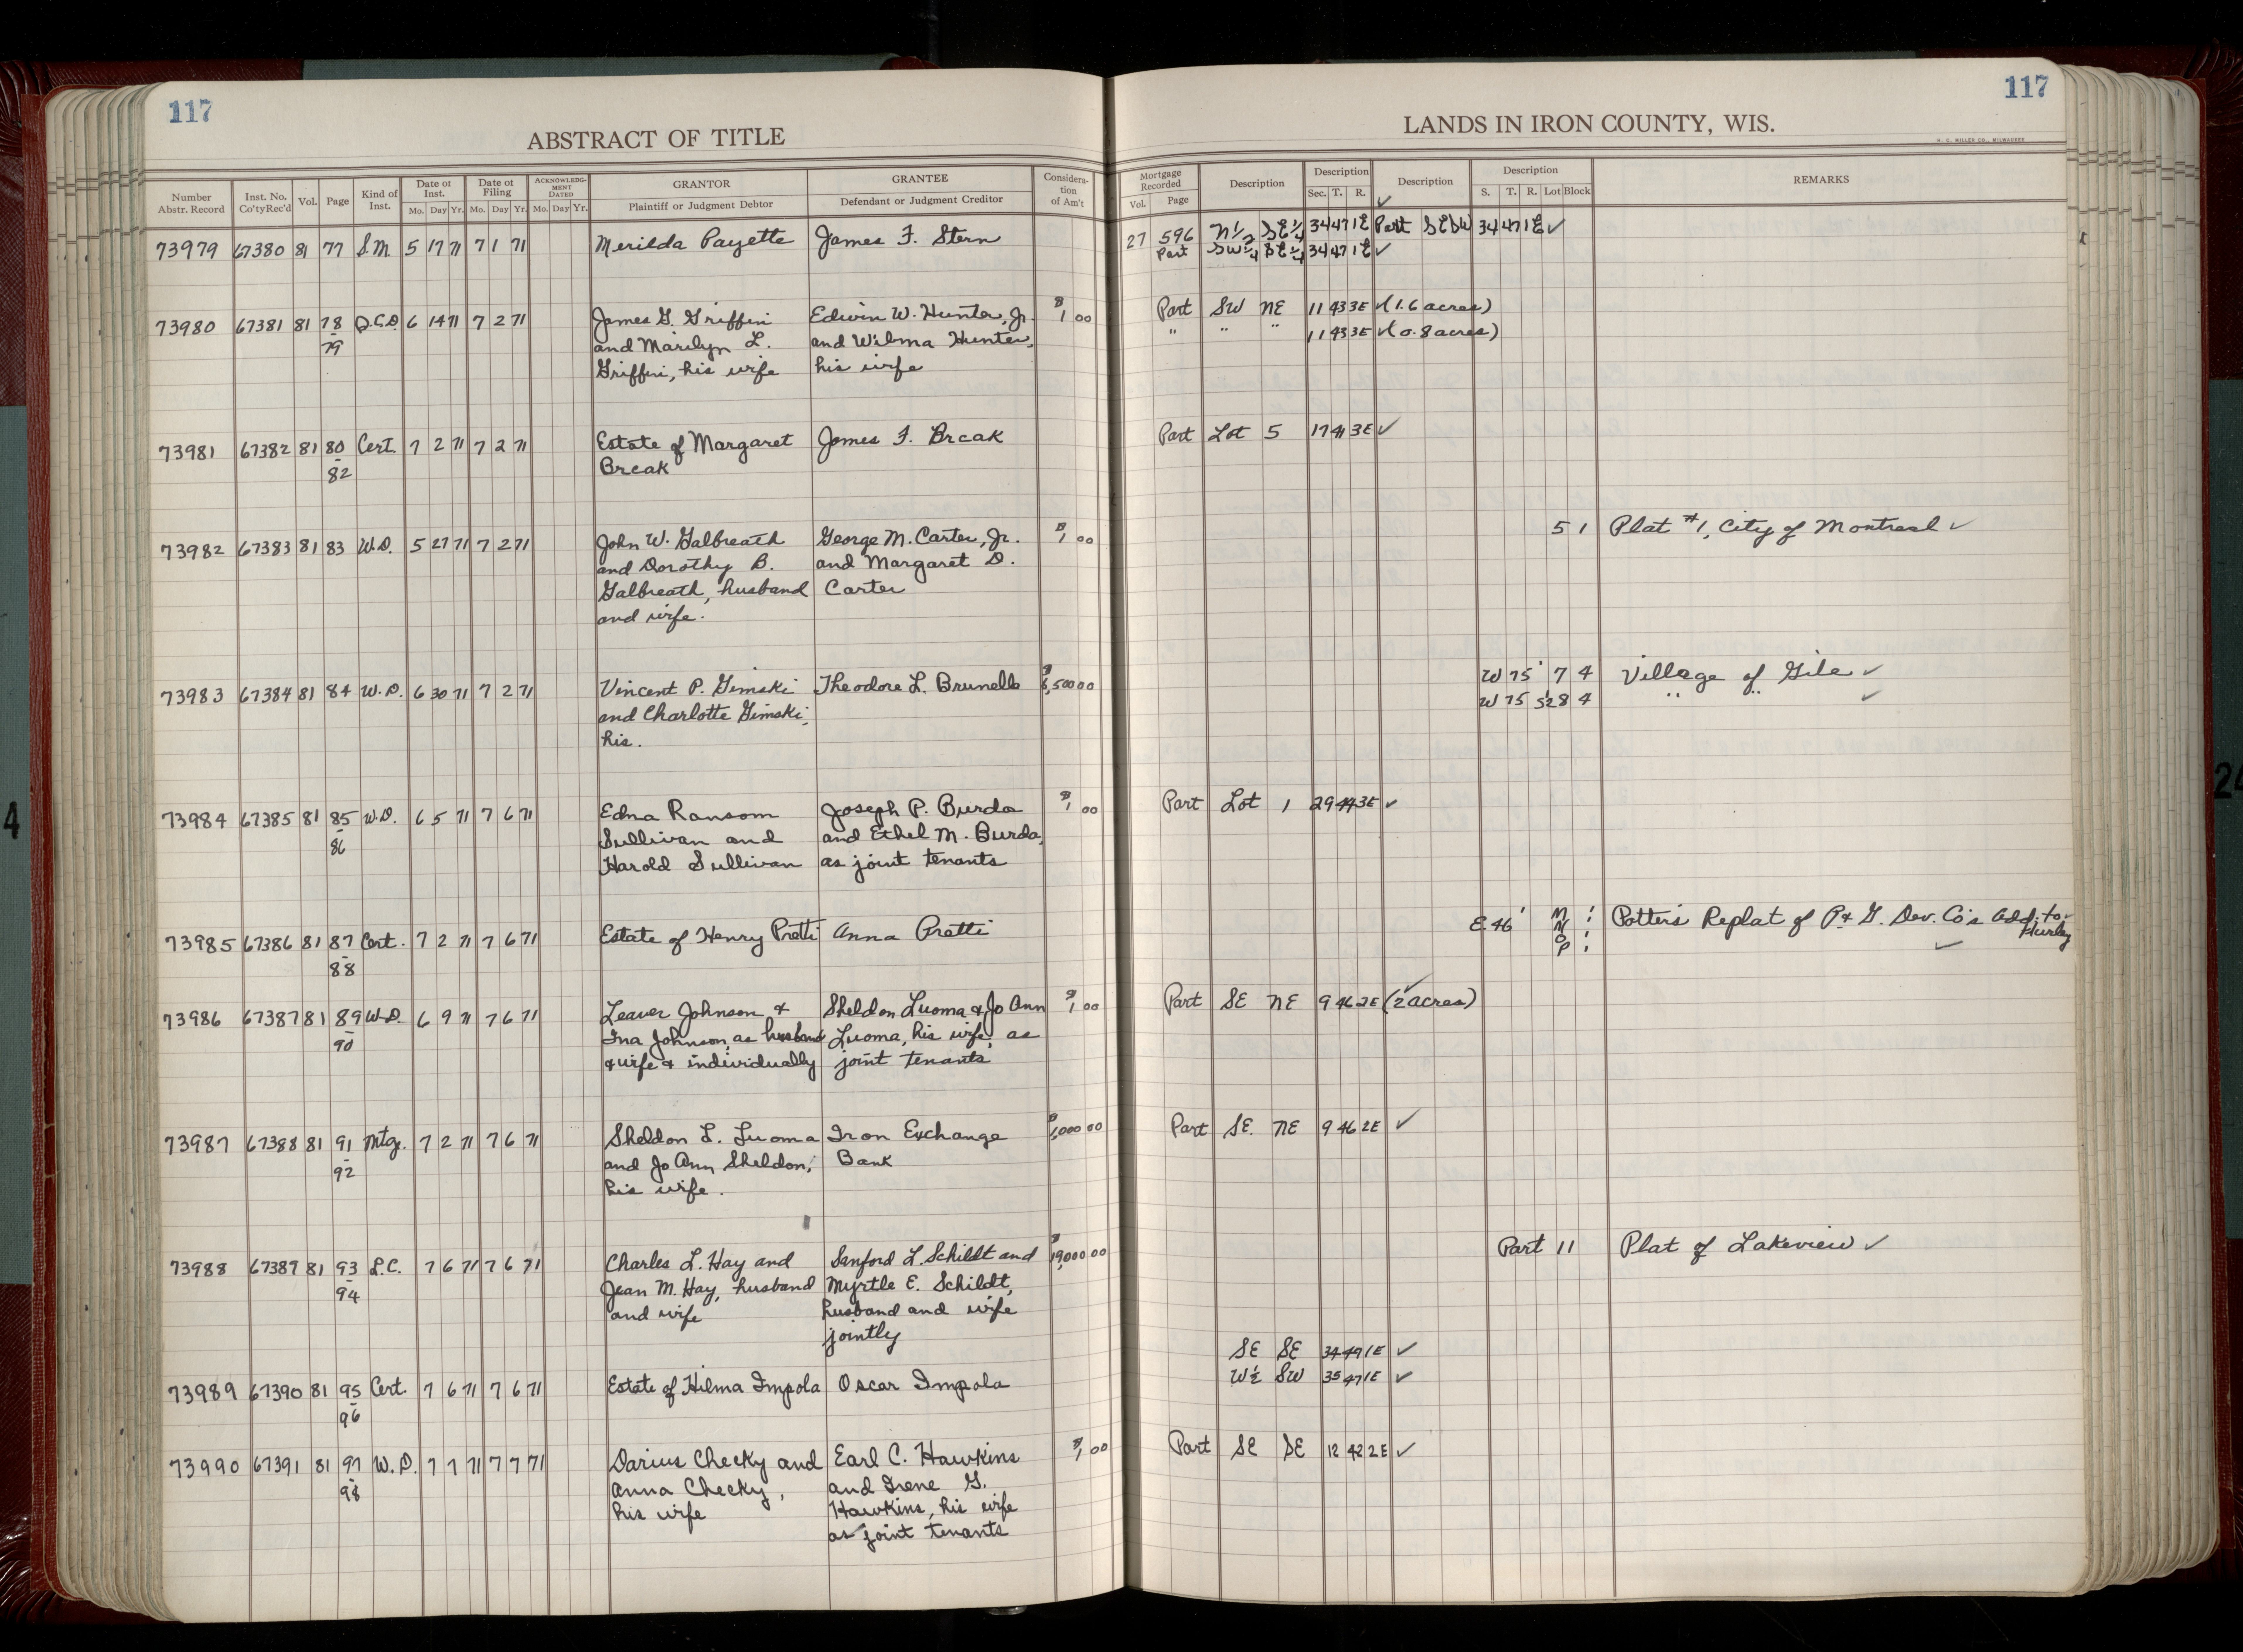 117
ABSTRACT OF TITLE
Number Abstr. Record
Inst. No. Co'ty Rec'd
Vol.
Page
Kind of Inst.
Date of Inst. Mo. Day Yr.
Date of Filing Mo. Day Yr.
ACKNOWLEDGMENT DATED Mo. Day Yr.
GRANTOR Plaintiff or Judgment Debtor
GRANTEE Defendant or Judgment Creditor
Consideration of Am't
117
LANDS IN IRON COUNTY, WIS.
H. C. MILLER CO., MILWAUKEE
Mortgage Recorded Vol. Page
Description
Description Sec. T. R.
Description
Description S. T. R. Lot Block
REMARKS
73979 67380 81 77 S.M. 5 17 71 7 1 71 Merilda Payette James F. Stern 27 596 N1/2 SE1/4 34 47 1E Part SESW 34 47 1E ✓
Part SW1/4 SE1/4 34 47 1E ✓
73980 67381 81 78 Q.C.D. 6 14 71 7 2 71 James G. Griffin Edwin W. Hunter, Jr. $1 00 Part SW NE 11 43 3E ✓ (1.6 acres)
79 and Marilyn L. and Wilma Hunter, " " " 11 43 3E ✓ (0.8 acres)
Griffin, his wife his wife
73981 67382 81 80 Cert. 7 2 71 7 2 71 Estate of Margaret James F. Break Part Lot 5 17 41 3E ✓
82 Break
73982 67383 81 83 W.D. 5 27 71 7 2 71 John W. Galbreath George M. Carter, Jr. $1 00 5 1 Plat #1, City of Montreal ✓
and Dorothy B. and Margaret D.
Galbreath, husband Carter
and wife.
73983 67384 81 84 W.D. 6 30 71 7 2 71 Vincent P. Gimski Theodore L. Brunello $6,500 00 W 75' 7 4 Village of Gile ✓
and Charlotte Gimski, W 75 S½ 8 4 " " ✓
his.
73984 67385 81 85 W.D. 6 5 71 7 6 71 Edna Ransom Joseph P. Burda $1 00 Part Lot 1 29 44 3E ✓
86 Sullivan and and Ethel M. Burda,
Harold Sullivan as joint tenants
73985 67386 81 87 Cert. 7 2 71 7 6 71 Estate of Henry Pretti Anna Pretti E 46' M 1 Potter's Replat of P. & G. Dev. Co's Add. to Hurley ✓
88 N 1
O 1
P 1
73986 67387 81 89 W.D. 6 9 71 7 6 71 Leaver Johnson & Sheldon Luoma & Jo Ann $1 00 Part SE NE 9 46 2E (2 acres) ✓
90 Ina Johnson, as husband Luoma, his wife, as
& wife & individually joint tenants
73987 67388 81 91 Mtg. 7 2 71 7 6 71 Sheldon L. Luoma Iron Exchange $1,000 00 Part SE. NE 9 46 2E ✓
92 and Jo Ann Sheldon, Bank
his wife.
73988 67389 81 93 L.C. 7 6 71 7 6 71 Charles L. Hay and Sanford L. Schildt and $19,000 00 Part 11 Plat of Lakeview ✓
94 Jean M. Hay, husband Myrtle E. Schildt,
and wife husband and wife
jointly
SE SE 34 47 1E ✓
73989 67390 81 95 Cert. 7 6 71 7 6 71 Estate of Hilma Impola Oscar Impola W½ SW 35 47 1E ✓
96
73990 67391 81 97 W.D. 7 7 71 7 7 71 Darius Checky and Earl C. Hawkins $1 00 Part SE SE 12 42 2E ✓
98 Anna Checky, and Irene G.
his wife Hawkins, his wife
as joint tenants